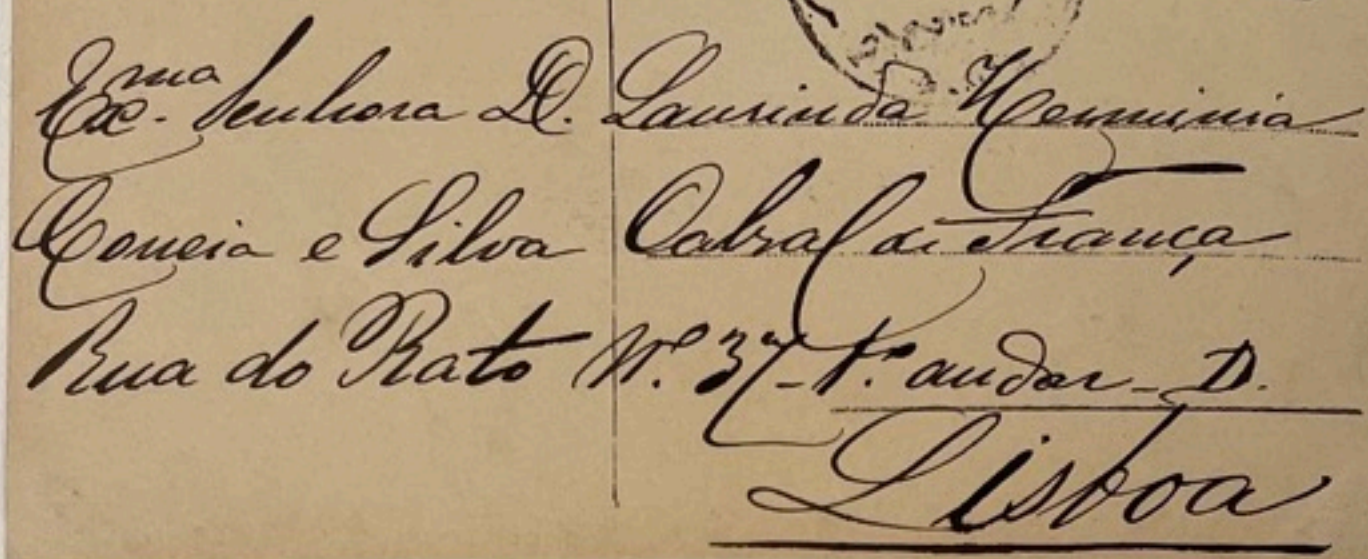 Exma. Senhora D. Laurinda Herminia
Correia e Silva Cabral de França
Rua do Rato Nº 37-1º andar- D.
Lisboa